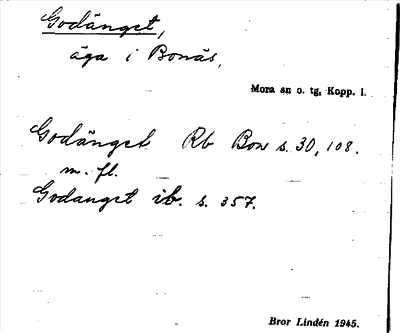 Godänget,
äga i Bonäs,
Mora sn o. tg, Kopp. l.
Godänget Rb Bon s. 30, 108.
m. fl.
Godanget ib. s. 357.
Bror Lindén 1945.